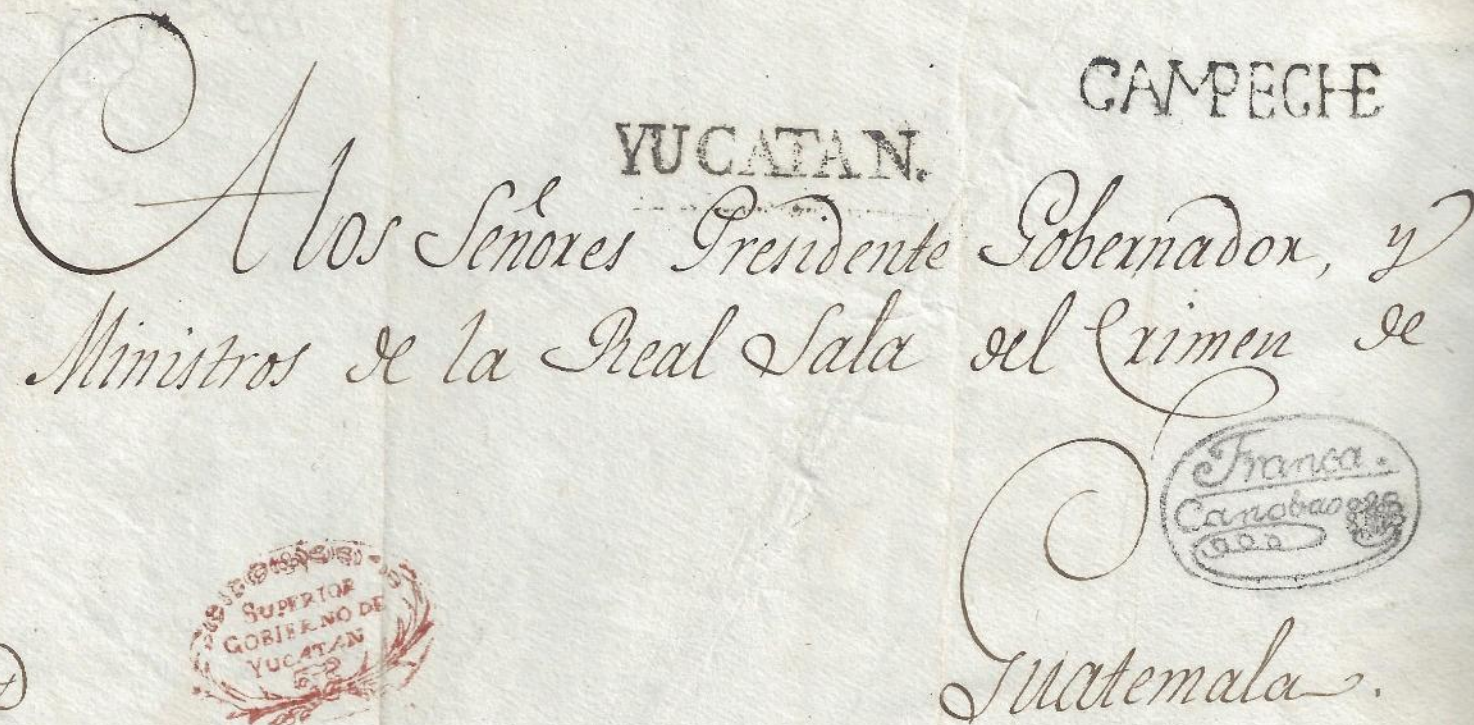 CAMPECHE
YUCATAN.
A los Señores Presidente Gobernador, y
Ministros de la Real Sala del Crimen de
Franca.
SUPERIOR
GOBIERNO DE
YUCATAN
Guatemala.